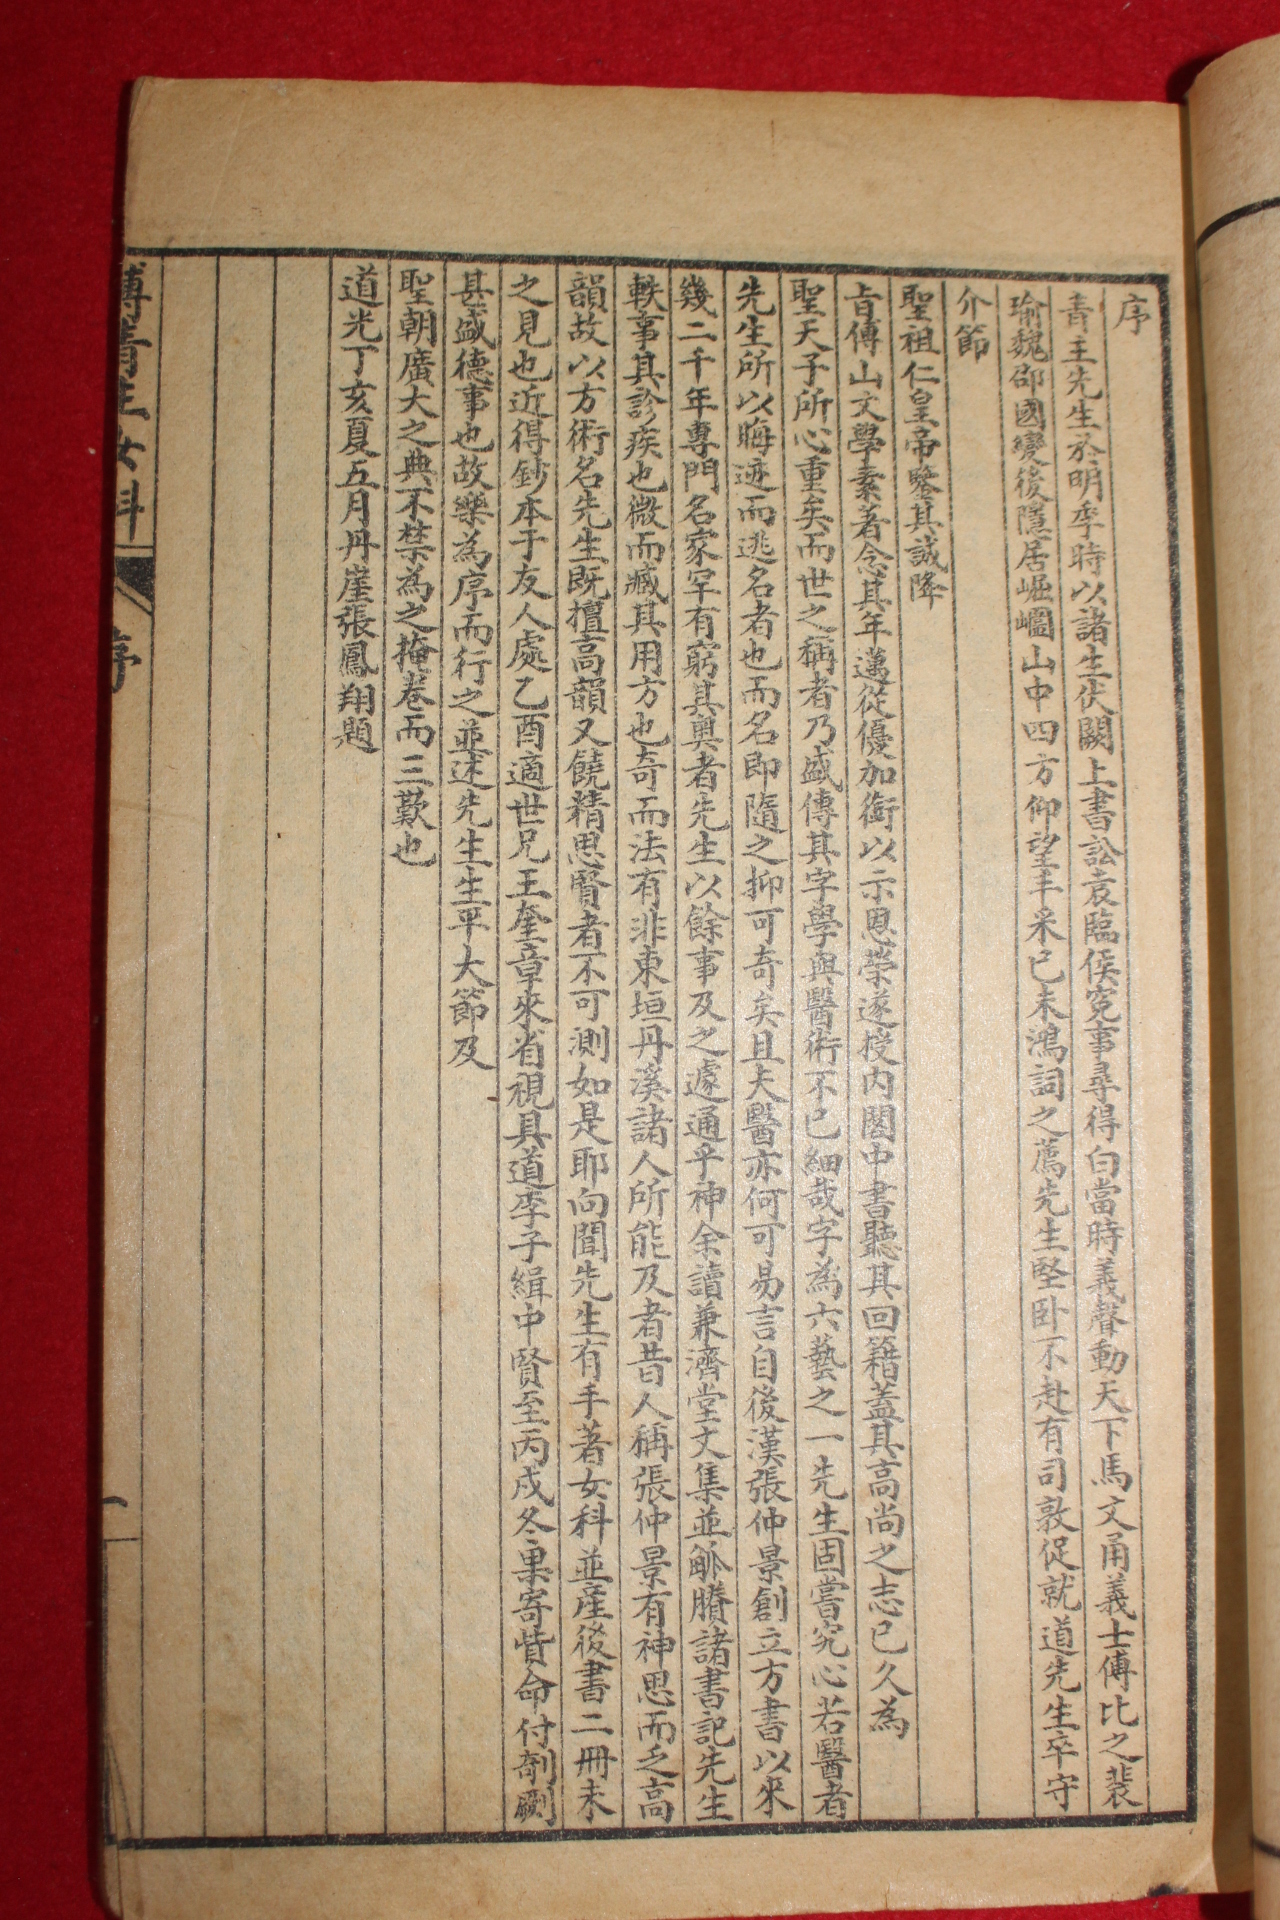 序
青主先生於明季時以諸生伏闕上書訟袁臨侯寃事尋得白當時義聲動天下馬文甬義士傅比之裴
瑜魏邵國變後隱居崛𡹬山中四方仰望丰采已未鴻詞之薦先生堅卧不赴有司敦促就道先生卒守
介節
聖祖仁皇帝鑒其誠降
旨傅山文學素著念其年邁從優加銜以示恩榮遂授内閣中書聽其回籍蓋其高尚之志已久為
聖天子所心重矣而世之稱者乃盛傳其字學與醫術不已細哉字為六藝之一先生固嘗究心若醫者
先生所以晦迹而逃名者也而名即隨之抑可奇矣且夫醫亦何可易言自後漢張仲景創立方書以來
幾二千年專門名家罕有窮其奥者先生以餘事及之遽通乎神余讀兼濟堂文集並觚賸諸書記先生
軼事其診疾也微而臧其用方也奇而法有非東垣丹溪諸人所能及者昔人稱張仲景有神思而乏高
韻故以方術名先生既擅高韻又饒精思賢者不可測如是耶向聞先生有手著女科並産後書二冊未
之見也近得鈔本于友人處乙酉適世兄王奎章來省視具道李子緝中賢至丙戌冬果寄貲命付剞劂
甚盛德事也故樂為序而行之並述先生生平大節及
聖朝廣大之典不禁為之掩卷而三歎也
道光丁亥夏五月丹崖張鳳翔題
傅青主女科 序 一